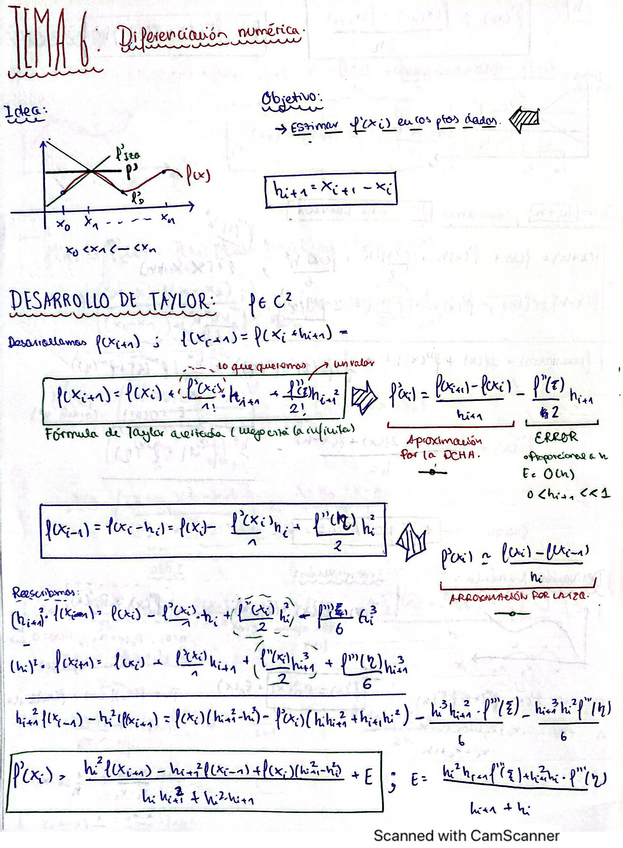 TEMA 6. Diferenciación numérica.
Idea:
Objetivo:
→ Estimar f'(xi) en los ptos dados.
f'IZQ
f'
f(x)
f'D
x0 x1 - - - - - xn
x0 < x1 < — < xn
hi+1 = xi+1 − xi
DESARROLLO DE TAYLOR: f ∈ C²
Desarrollamos f(xi+1) ; f(xi+1) = f(xi + hi+1) =
lo que queremos → un valor
f(xi+1) = f(xi) + f'(xi)/1! · hi+1 + f''(ξ)/2! hi+1²
f'(xi) = (f(xi+1) − f(xi))/hi+1 − f''(ξ)/2 hi+1
Fórmula de Taylor acotada (luego está la infinita)
Aproximación por la DCHA.
ERROR
• Proporcional a h
E = O(h)
0 < hi+1 << 1
f(xi−1) = f(xi − hi) = f(xi) − f'(xi)/1 hi + f''(η)/2 hi²
f'(xi) ≃ (f(xi) − f(xi−1))/hi
APROXIMACIÓN POR LA IZQ.
Reescribimos:
(hi+1)² · f(xi−1) = f(xi) − f'(xi)/1 · hi + f''(xi)/2 hi² − f'''(ξ)/6 hi³
−
(hi)² · f(xi+1) = f(xi) + f'(xi)/1 hi+1 + f''(xi)/2 hi+1² + f'''(η)/6 hi+1³
hi+1² f(xi−1) − hi² f(xi+1) = f(xi)(hi+1² − hi²) − f'(xi)(hi hi+1² + hi+1 hi²) − hi³ hi+1² · f'''(ξ)/6 − hi+1³ hi² f'''(η)/6
f'(xi) = (hi² f(xi+1) − hi+1² f(xi−1) + f(xi)(hi+1² − hi²))/(hi hi+1² + hi² · hi+1) + E ; E = (hi² hi+1 f'''(ξ) + hi+1² hi · f'''(η))/(hi+1 + hi)
Scanned with CamScanner